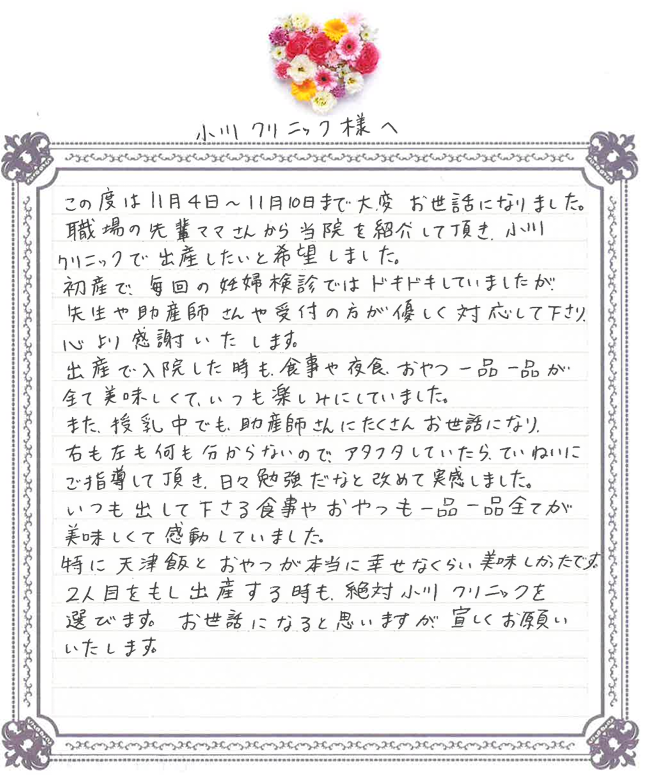 小川クリニック様へ
この度は11月4日～11月10日まで大変お世話になりました。
職場の先輩ママさんから当院を紹介して頂き、小川
クリニックで出産したいと希望しました。
初産で、毎回の妊婦検診ではドキドキしていましたが
先生や助産師さんや受付の方が優しく対応して下さり、
心より感謝いたします。
出産で入院した時も、食事や夜食、おやつ一品一品が
全て美味しくて、いつも楽しみにしていました。
また、授乳中でも、助産師さんにたくさんお世話になり、
右も左も何も分からないので、アタフタしていたら、ていねいに
ご指導して頂き、日々勉強だなと改めて実感しました。
いつも出して下さる食事やおやつも一品一品全てが
美味しくて感動していました。
特に天津飯とおやつが本当に幸せなくらい美味しかったです。
2人目をもし出産する時も、絶対小川クリニックを
選びます。お世話になると思いますが、宜しくお願い
いたします。